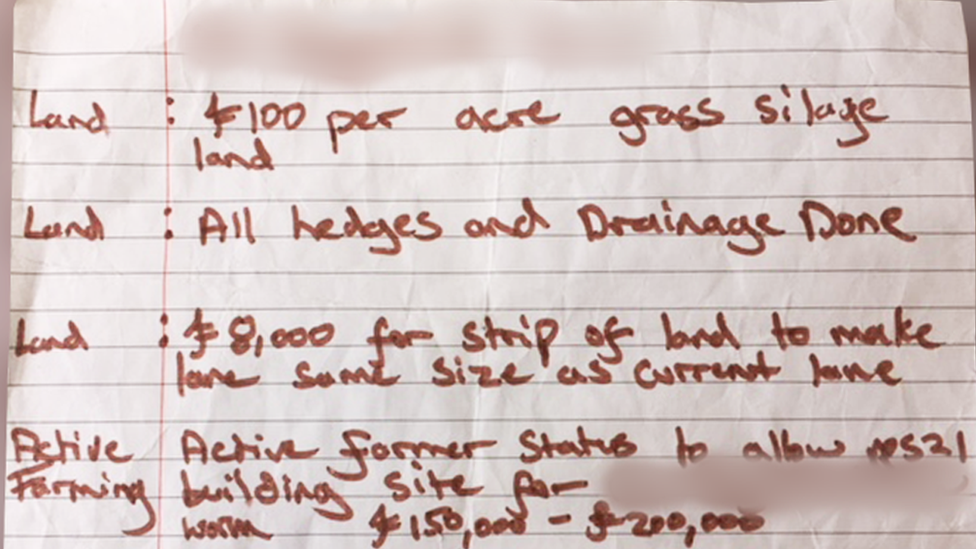 Land : £100 per acre grass silage
land
Land : All hedges and Drainage Done
Land : £8,000 for strip of land to make
lane same size as current lane
Active Active farmer Status to allow pps21
Farming building site for
worth £150,000 - £200,000